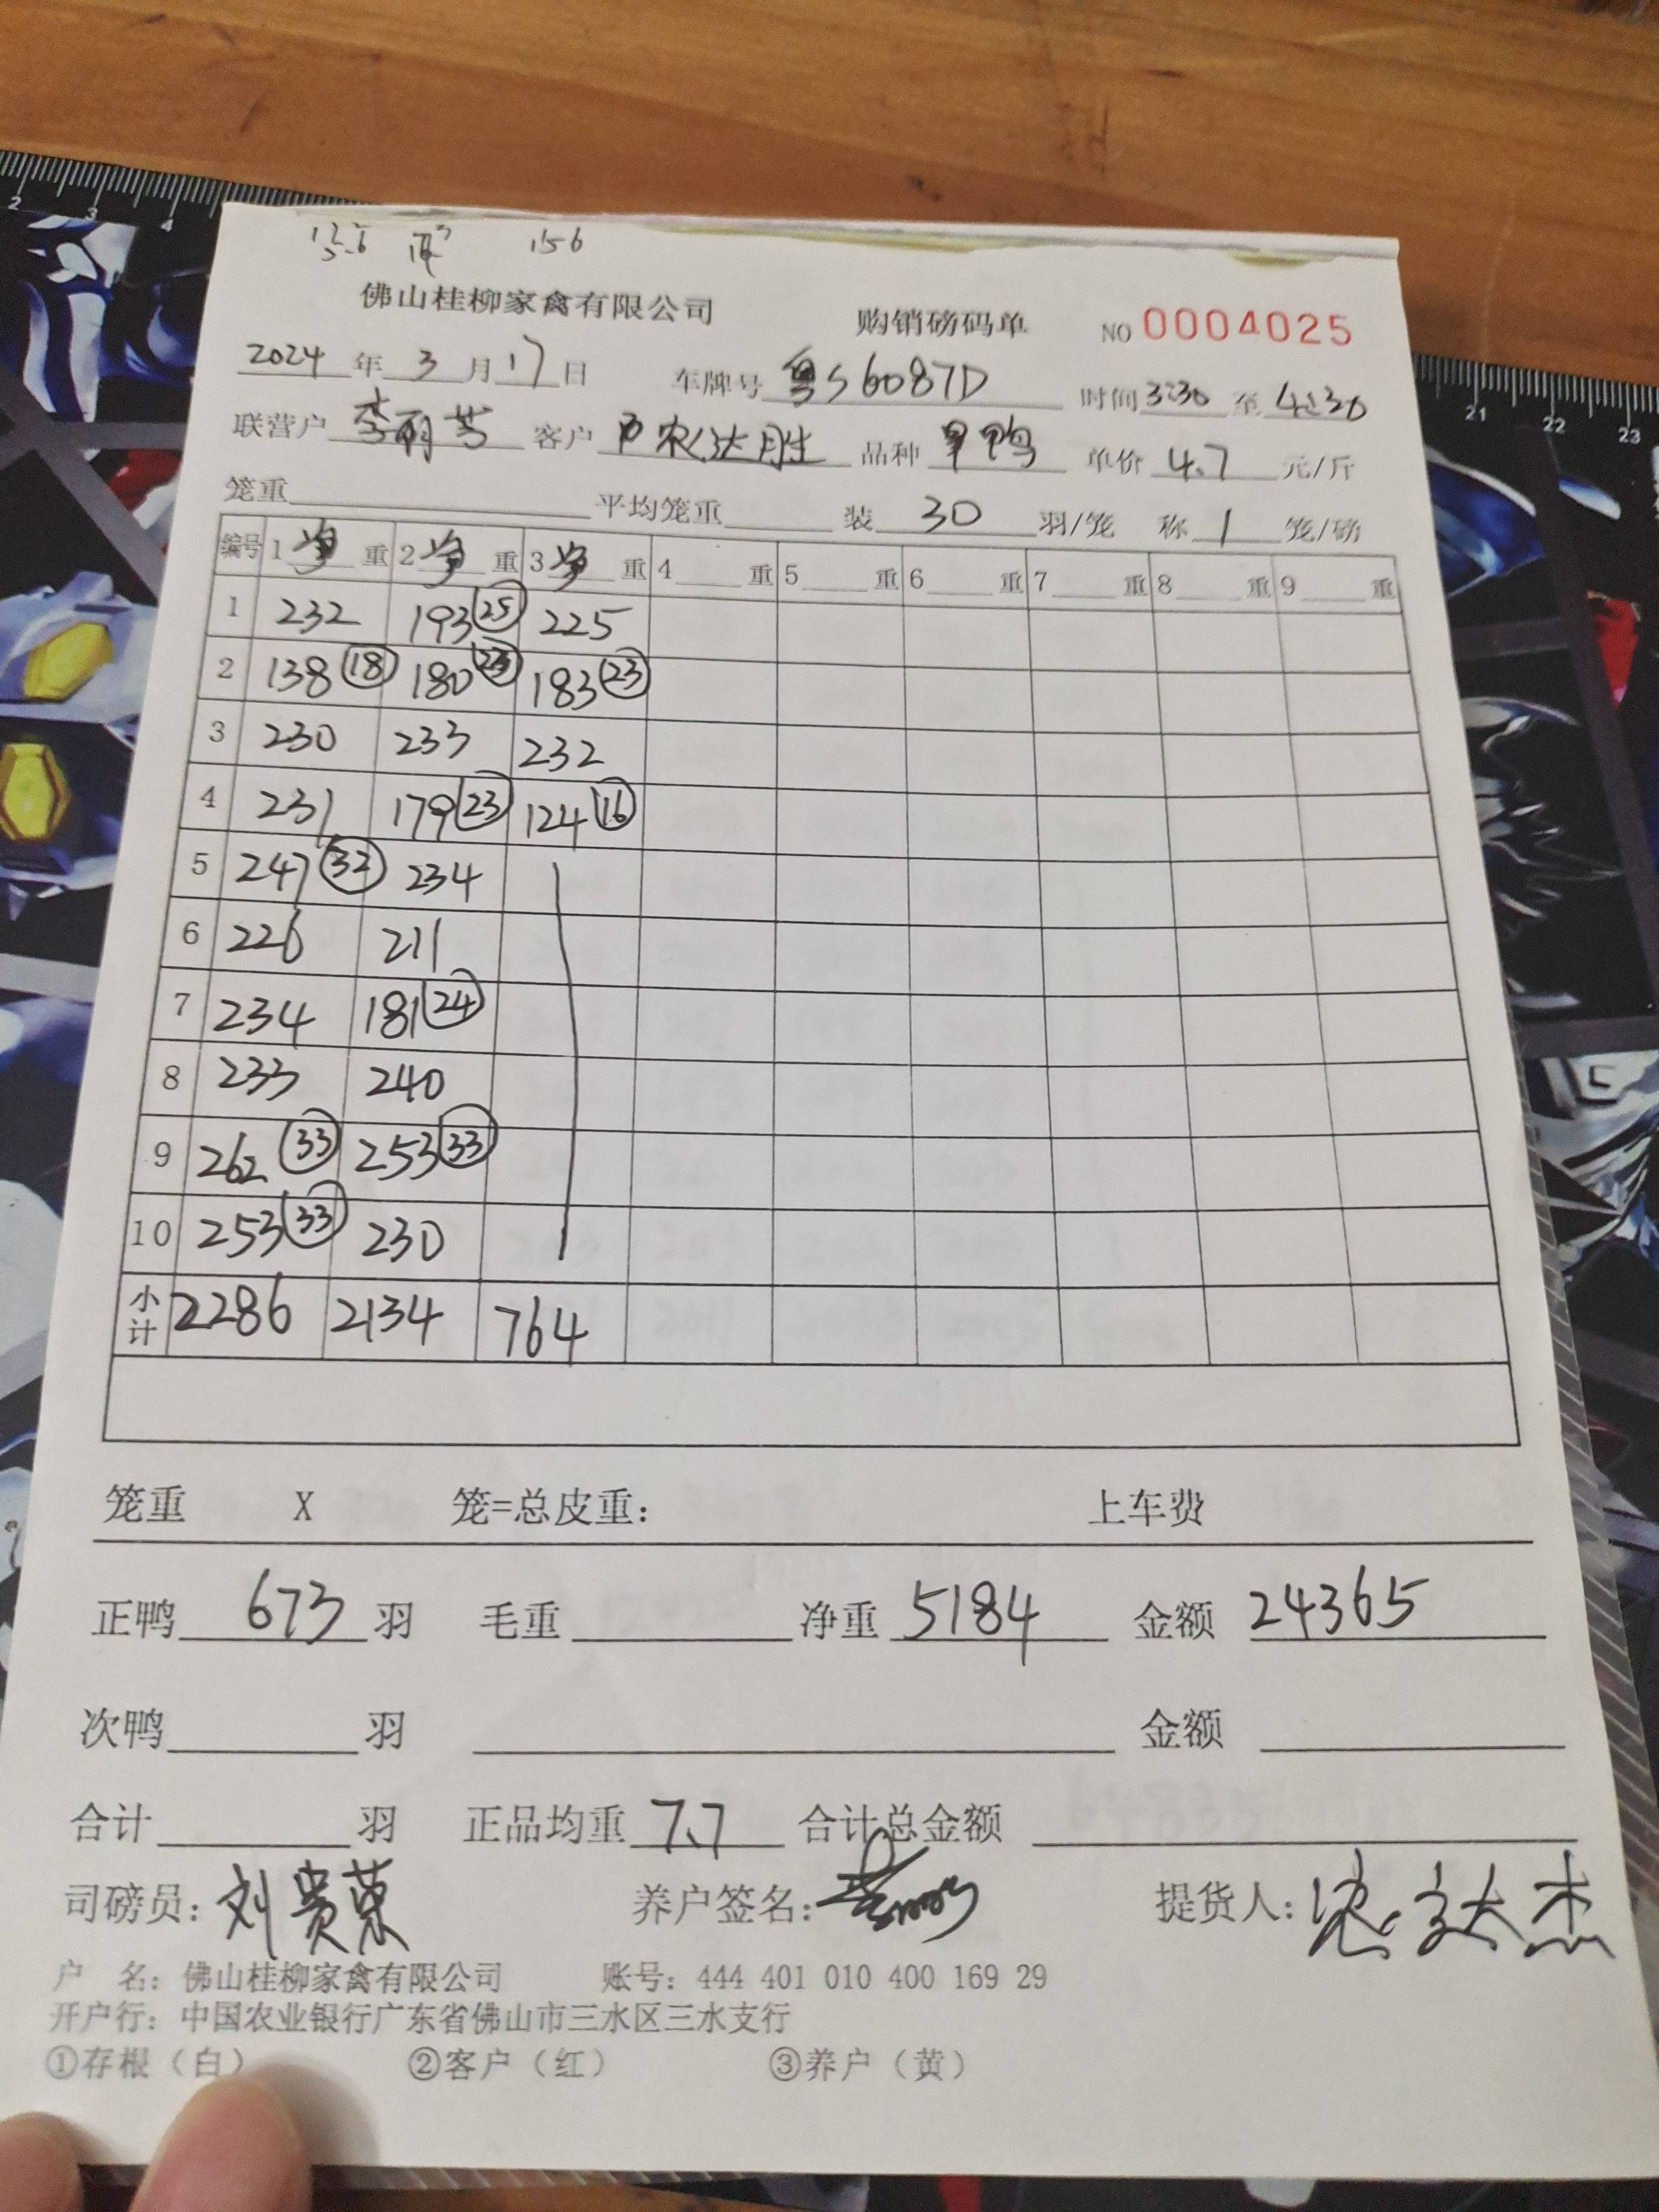 156
佛山桂柳家禽有限公司 购销磅码单 NO 0004025
2024 年 3 月 17 日 车牌号 粤S6087D 时间 3:30 至 4:30
联营户 李丽芳 客户 农达胜 品种 鸭 单价 4.7 元/斤
笼重 平均笼重 装 30 羽/笼 称 1 笼/磅
编号 1 净 重 2 净 重 3 净 重 4 重 5 重 6 重 7 重 8 重 9 重
1 232 193 25 225
2 138 18 180 23 183 23
3 230 233 232
4 231 179 23 124 16
5 247 32 234
6 226 211
7 234 181 24
8 233 240
9 262 33 253 33
10 253 33 230
小计 2286 2134 764
笼重 X 笼=总皮重: 上车费
正鸭 673 羽 毛重 净重 5184 金额 24365
次鸭 羽 金额
合计 羽 正品均重 7.7 合计总金额
司磅员: 刘贵荣 养户签名: 提货人:
户 名: 佛山桂柳家禽有限公司 账号: 444 401 010 400 169 29
开户行: 中国农业银行广东省佛山市三水区三水支行
①存根（白） ②客户（红） ③养户（黄）
2 3 4
21 22 23